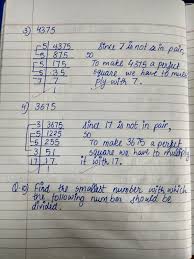 3) 4375
5 4375 Since 7 is not in pair,
5 875 so
5 175 To make 4375 a perfect
5 35 square we have to multi
7 7 ply with 7.
1
4) 3675
3 3675 Since 17 is not in pair,
5 1225 so
5 255 To make 3675 a perfect
3 51 square we have to multiply
17 17 it with 17.
1
Q.6) Find the smallest number with which
the following number should be
divided.